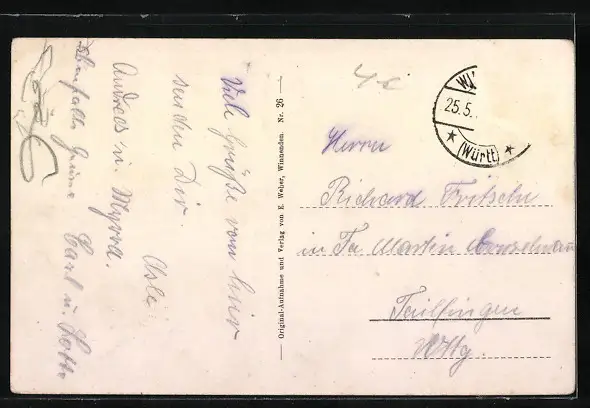 Viele Grüße von hier
senden Dir.
Andreas u. Myrna.
ebenfalls Grüsse Carl u. Lotte
Original-Aufnahme und Verlag von E. Weber, Winnenden. Nr. 26
25.5.
(Württ)
Herrn
Richard Fritschi
in Fa. Martin
Tailfingen
Wttg.